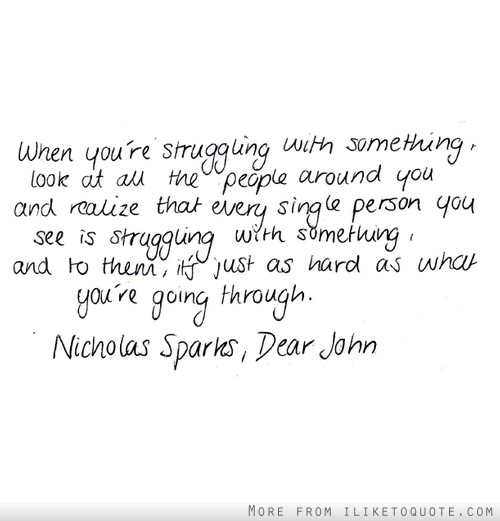 When you're struggling with something,
look at all the people around you
and realize that every single person you
see is struggling with something,
and to them, it's just as hard as what
you're going through.
Nicholas Sparks, Dear John
MORE FROM ILIKETOQUOTE.COM